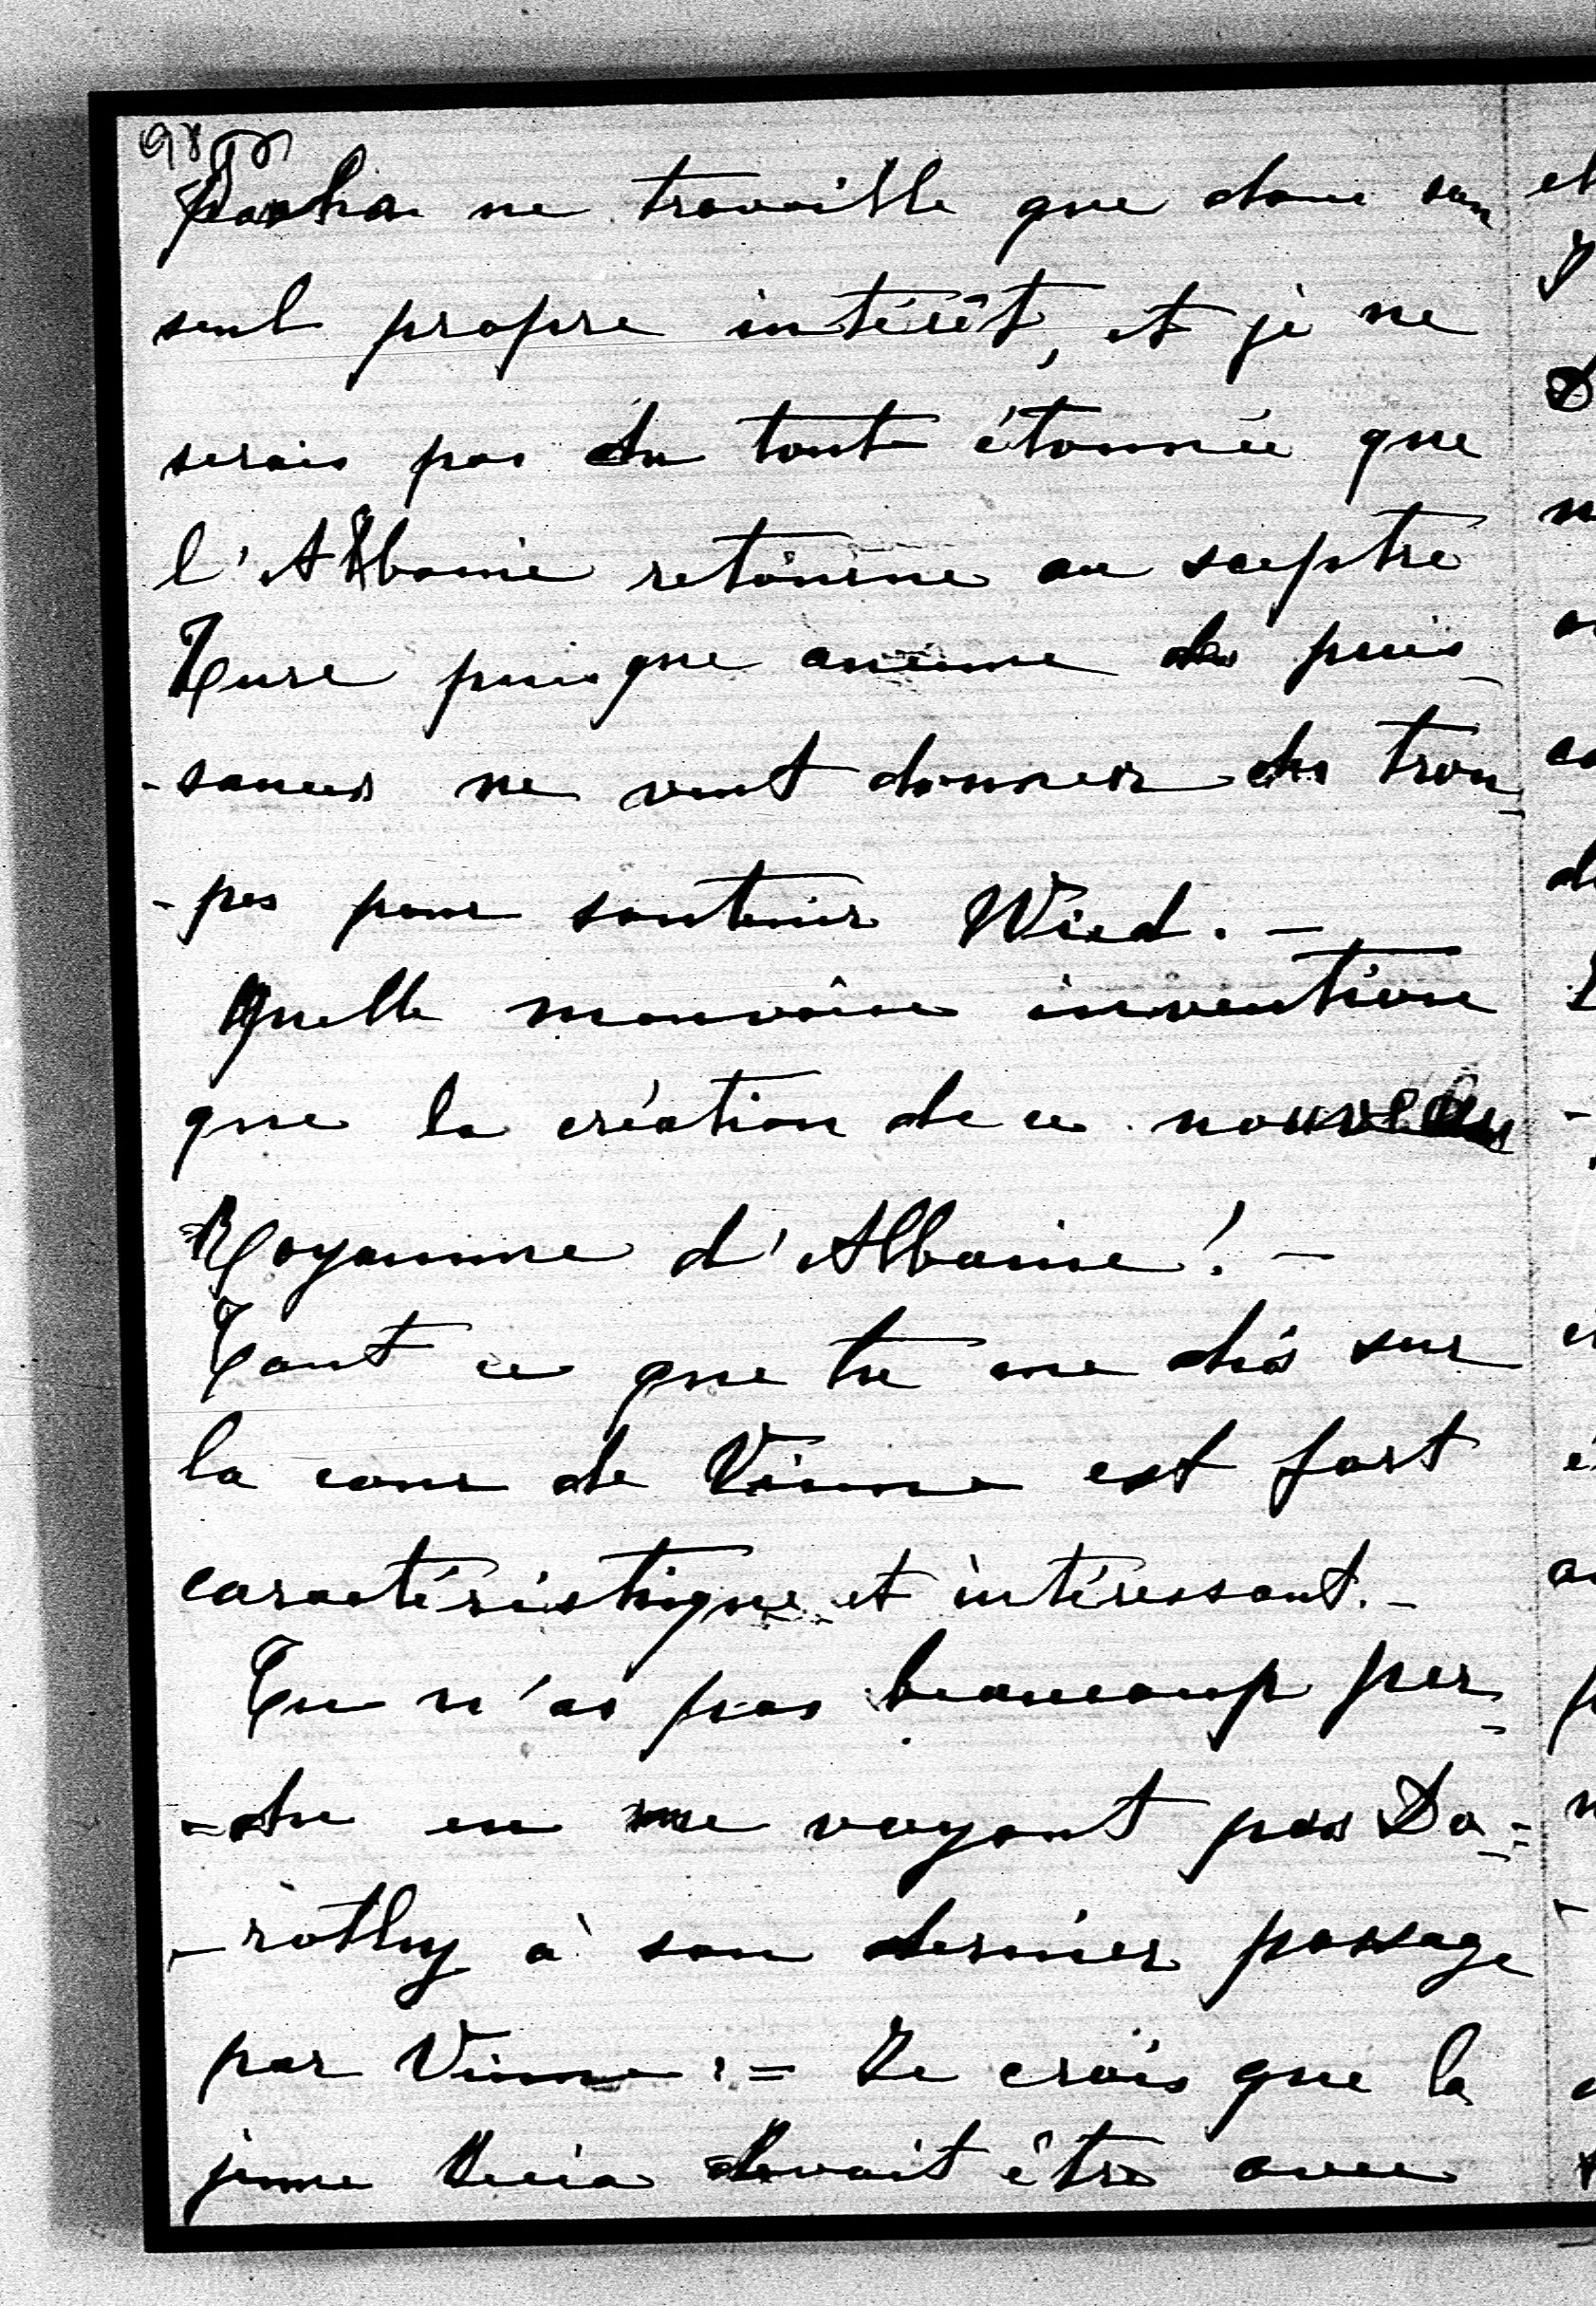 98
Pacha ne travaille que dans son
seul propre intérêt, et je ne
serais pas du tout étonnée que
l'Albanie retourne au sceptre
Turc puisque aucune des puis-
-sances ne veut donner des trou-
-pes pour soutenir Wied. -
Quelle mauvaise invention
que la création de ce nouveau
Royaume d'Albanie! -
Tout ce que tu me dis sur
la cour de Vienne est fort
caractéristique et intéressant. -
Tu n'as pas beaucoup per-
=du en ne voyant pas Do-=
-rothy à son dernier passage
par Vienne: = Je crois que la
jeune devait être avec